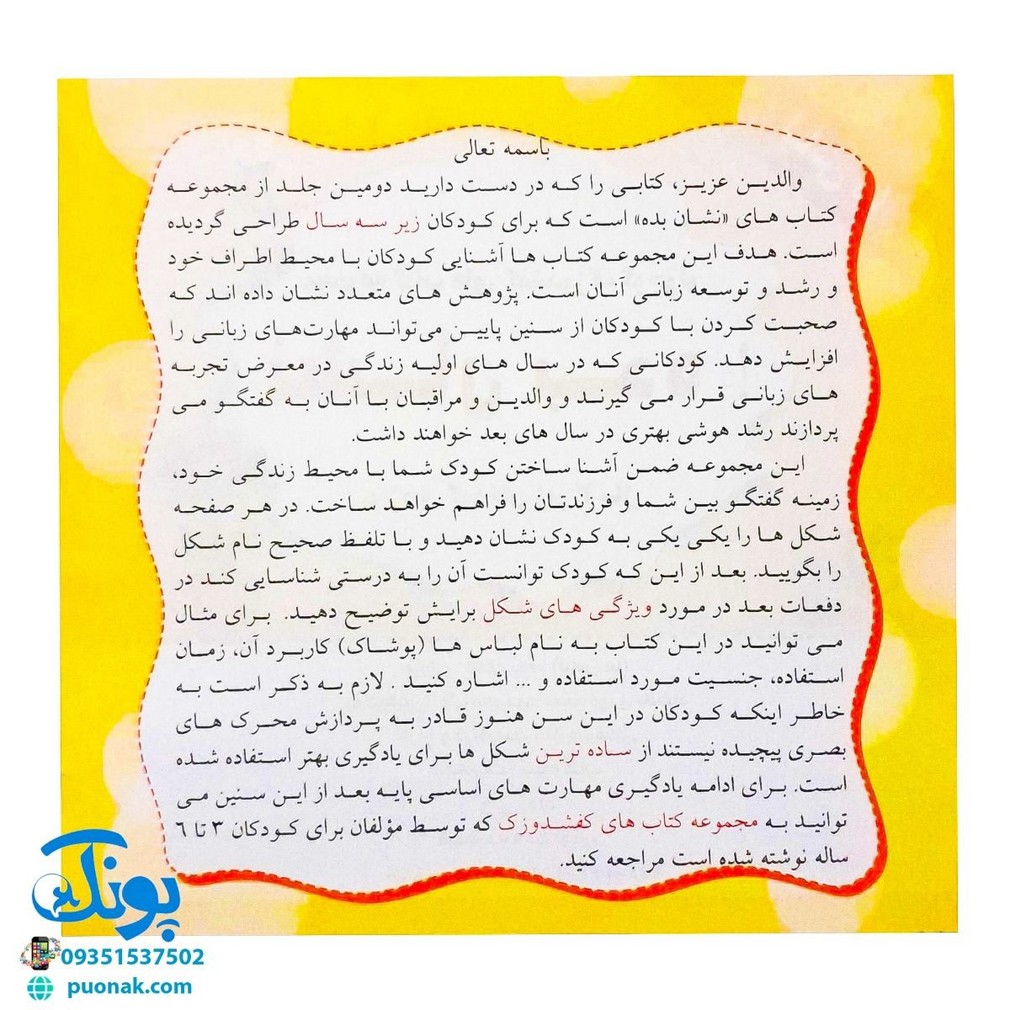 باسمه تعالی
والدین عزیز، کتابی را که در دست دارید دومین جلد از مجموعه
کتاب های «نشان بده» است که برای کودکان زیر سه سال طراحی گردیده
است. هدف این مجموعه کتاب ها آشنایی کودکان با محیط اطراف خود
و رشد و توسعه زبانی آنان است. پژوهش های متعدد نشان داده اند که
صحبت کردن با کودکان از سنین پایین می‌تواند مهارت‌های زبانی را
افزایش دهد. کودکانی که در سال های اولیه زندگی در معرض تجربه
های زبانی قرار می گیرند و والدین و مراقبان با آنان به گفتگو می
پردازند رشد هوشی بهتری در سال های بعد خواهند داشت.
این مجموعه ضمن آشنا ساختن کودک شما با محیط زندگی خود،
زمینه گفتگو بین شما و فرزندتان را فراهم خواهد ساخت. در هر صفحه
شکل ها را یکی یکی به کودک نشان دهید و با تلفظ صحیح نام شکل
را بگویید. بعد از این که کودک توانست آن را به درستی شناسایی کند در
دفعات بعد در مورد ویژگی های شکل برایش توضیح دهید. برای مثال
می توانید در این کتاب به نام لباس ها (پوشاک) کاربرد آن، زمان
استفاده، جنسیت مورد استفاده و ... اشاره کنید . لازم به ذکر است به
خاطر اینکه کودکان در این سن هنوز قادر به پردازش محرک های
بصری پیچیده نیستند از ساده ترین شکل ها برای یادگیری بهتر استفاده شده
است. برای ادامه یادگیری مهارت های اساسی پایه بعد از این سنین می
توانید به مجموعه کتاب های کفشدوزک که توسط مؤلفان برای کودکان ۳ تا ٦
ساله نوشته شده است مراجعه کنید.
پونک
09351537502
puonak.com